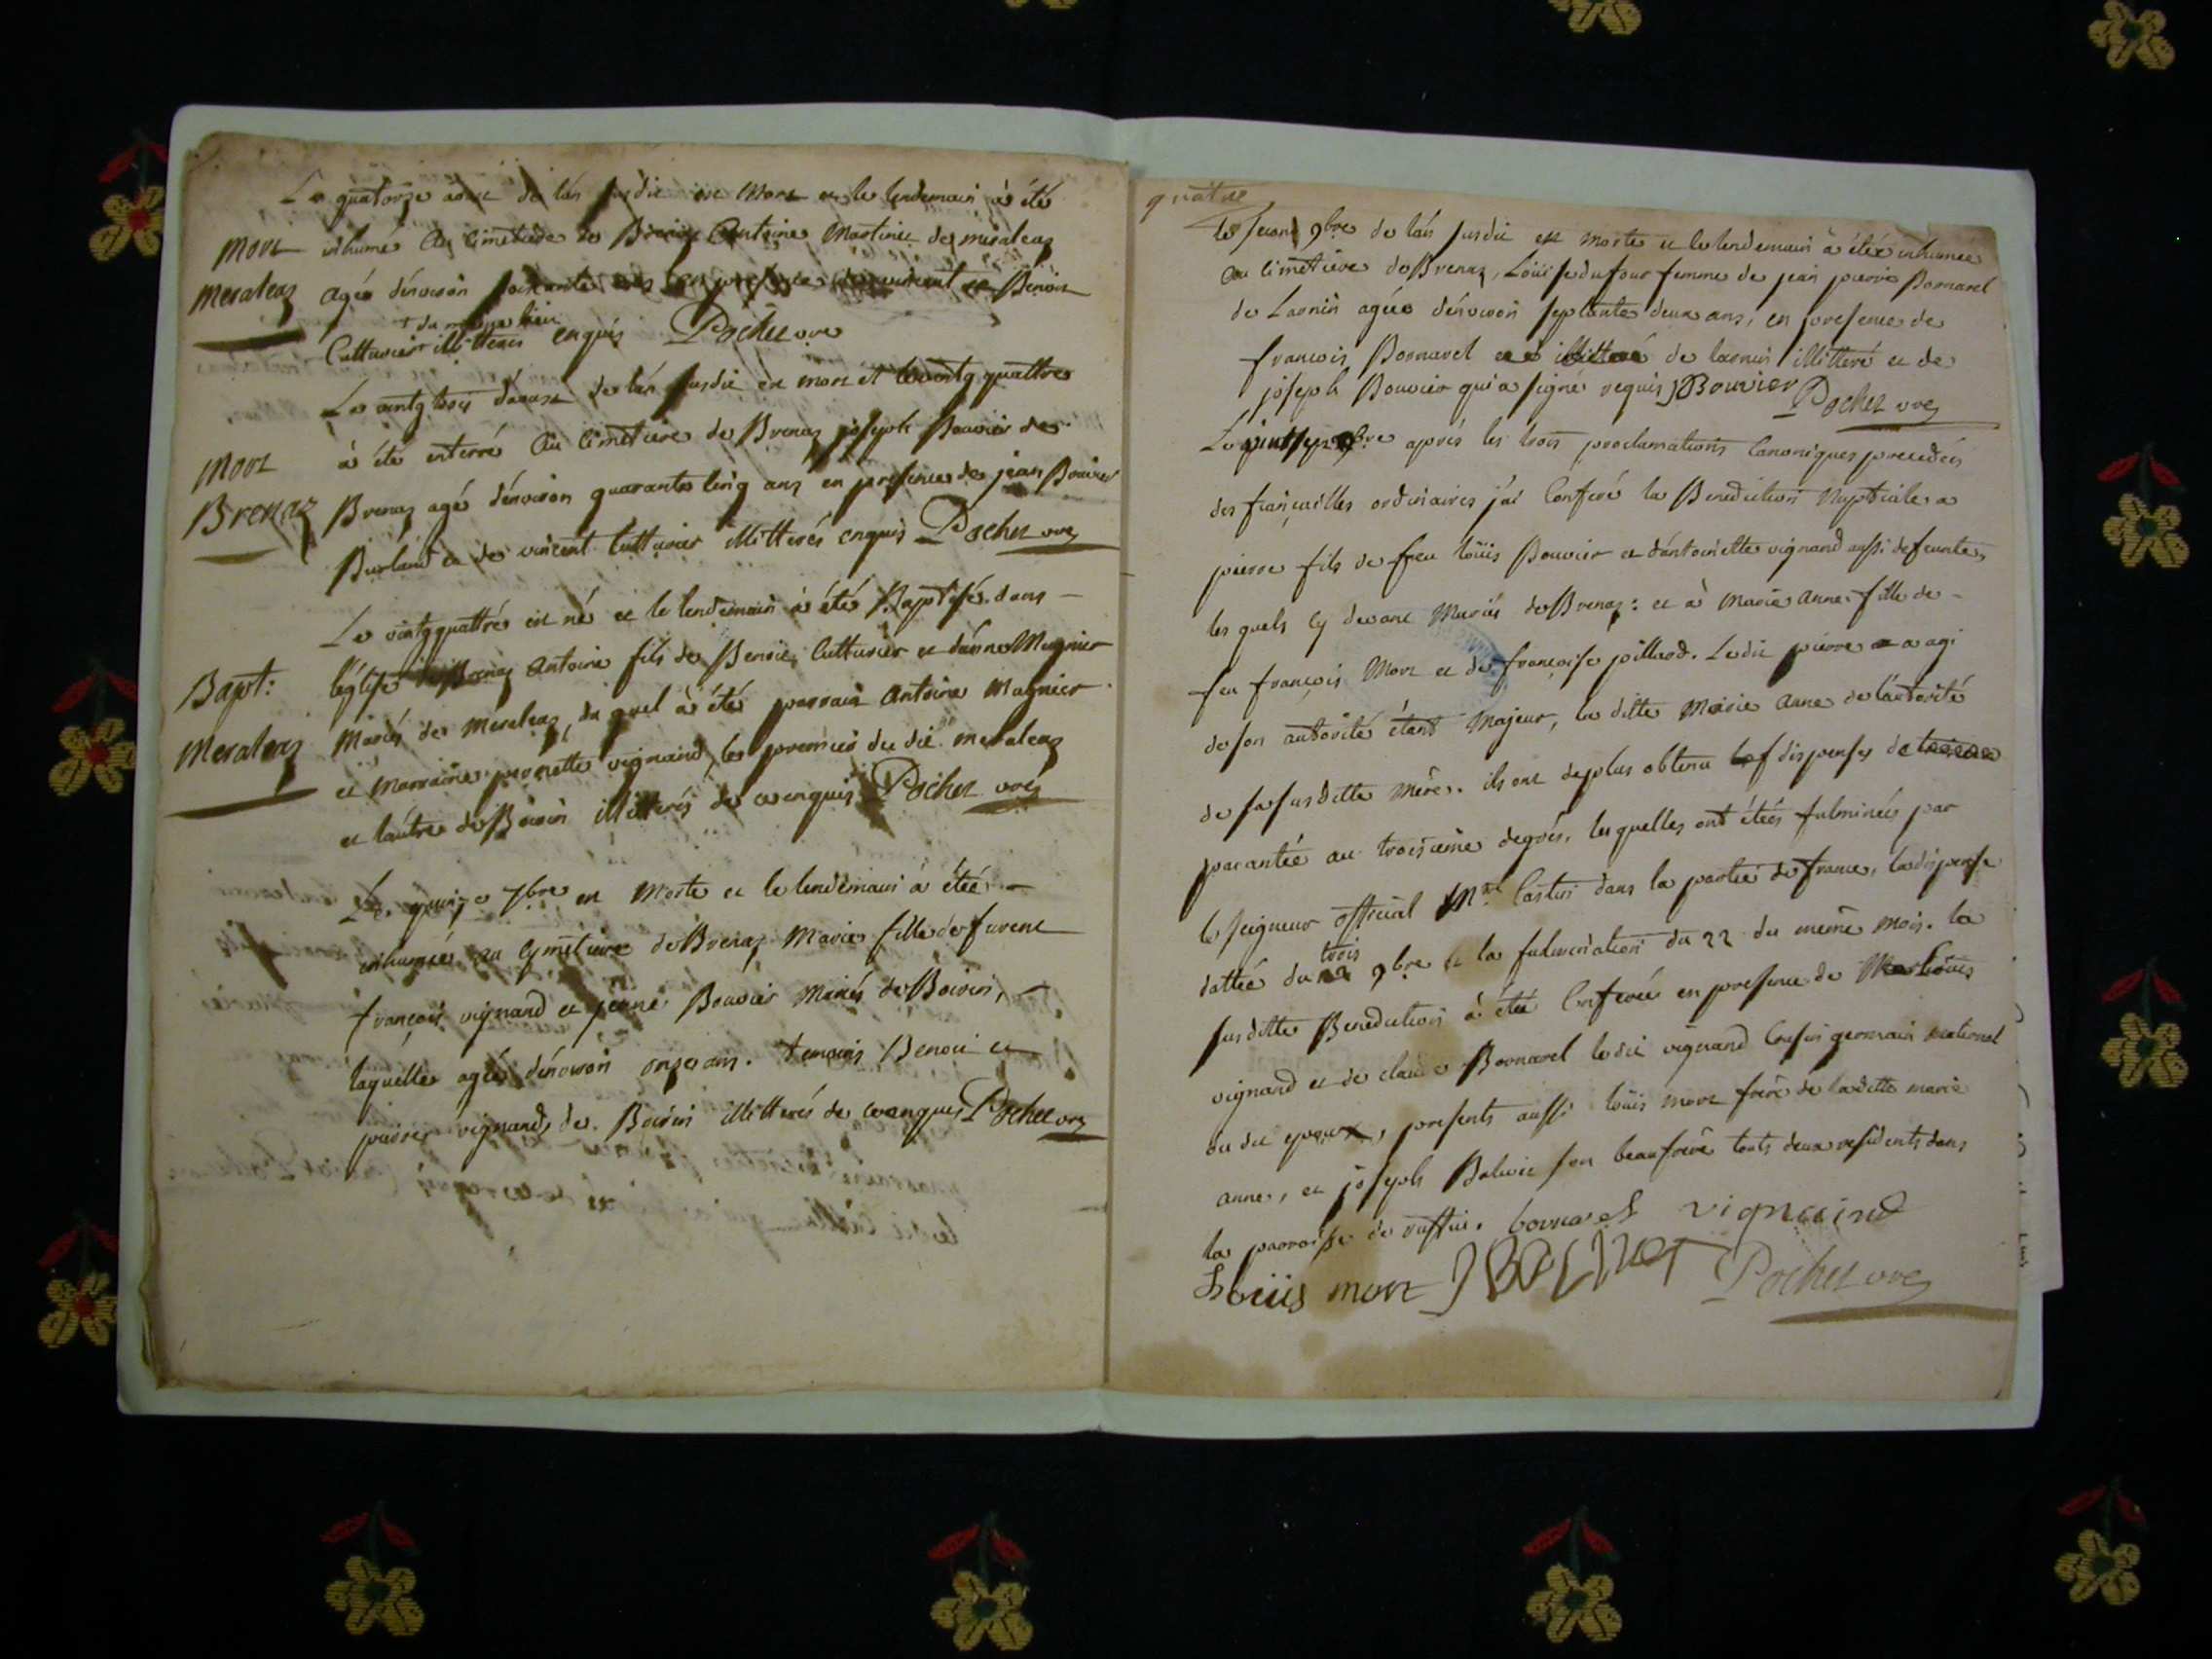 Le quatorze aout de lán susdit est Mort et le lendemain à été
Mort inhumé Au Cimetiere de Brenaz Antoine Martinet de méraleaz
Meraleaz Agée dénviron soixante ans en presence de vincent et Benoit
+ du même lieu
Cutturier + illitterés enquis Pochet vre
Le vintg trois d'aoust de lán susdit est mort et le vintg quattre
Mort à été enterré Au Cimetiere de Brenaz joseph Bouvier de
Brenaz Brenaz agé dénviron quarante cinq ans en presence de jean Bouvier
Burland et de vincent Cutturier illitterés enquis Pochet vre
Le vintgquattre est né et le lendemain à été Baptisé dans
Bapt: léglise de Brenaz Antoine fils de Benoit Cutturier et dánne Magnier
Meraleaz Mariés de Meraleaz, du quel à été parrain Antoine Magnier
et Marraine pernette vignand, les premier du dit meraleaz
et láutre de Boirin illitterés de ce enquis Pochet vre
Le quinze 7bre est Morte et le lendemain à étée
inhumée au Cymetiere de Brenaz Marie fille de furent
françois vignand et jeanne Bouvier Mariés de Boirin,
laquelle agée dénviron onze ans. temoins Benoit et
pierre vignand, de Boirin illitterés de ce enquis Pochet vre
quatre
Le second 9bre de lán susdit est morte et le lendemain à étée inhumée
Au Cimetiere de Brenaz, Loüise dufour femme de jean pierre Bornarel
de Larnin agée dénviron septante deux ans, en presence de
francois Bornarel de larnin illitteré et de
joseph Bouvier qui a signé requis JBouvier Pochet vre
Le après les trois proclamations Canoniques precedées
des fiançailles ordinaires j'ai Conferé la Benediction Nuptiale a
pierre fils de feu loüis Bouvier et dántoinette vignand aussi defeunte,
les quels Cy devant Mariés de Brenaz: et à Marie Anne fille de
feu françois Mort et de françoise juilland. Ledit pierre a agi
de son autorité étant Majeur, la ditte Marie Anne de láutorité
de sa susditte mère. ils ont deplus obtenu dispenses de
parantée au troisième degrés, les quelles ont étées fulminées par
le seigneur official Mr Castin dans la partie de france, la dispense
trois
dattée du 9bre et la fulmination du 22 du même mois. la
susditte Benediction à été Conferée en presence de Loüis
vignand et de claude Bornarel ledit vignand Cousin germain maternel
du dit epoux, presents aussi loüis mort frère de laditte marie
Anne, et joseph Balivet son beaufrère touts deux residents dans
la parroisse de ruffieu. bornarel vignaind
Loüis mort JBalivet Pochet vre